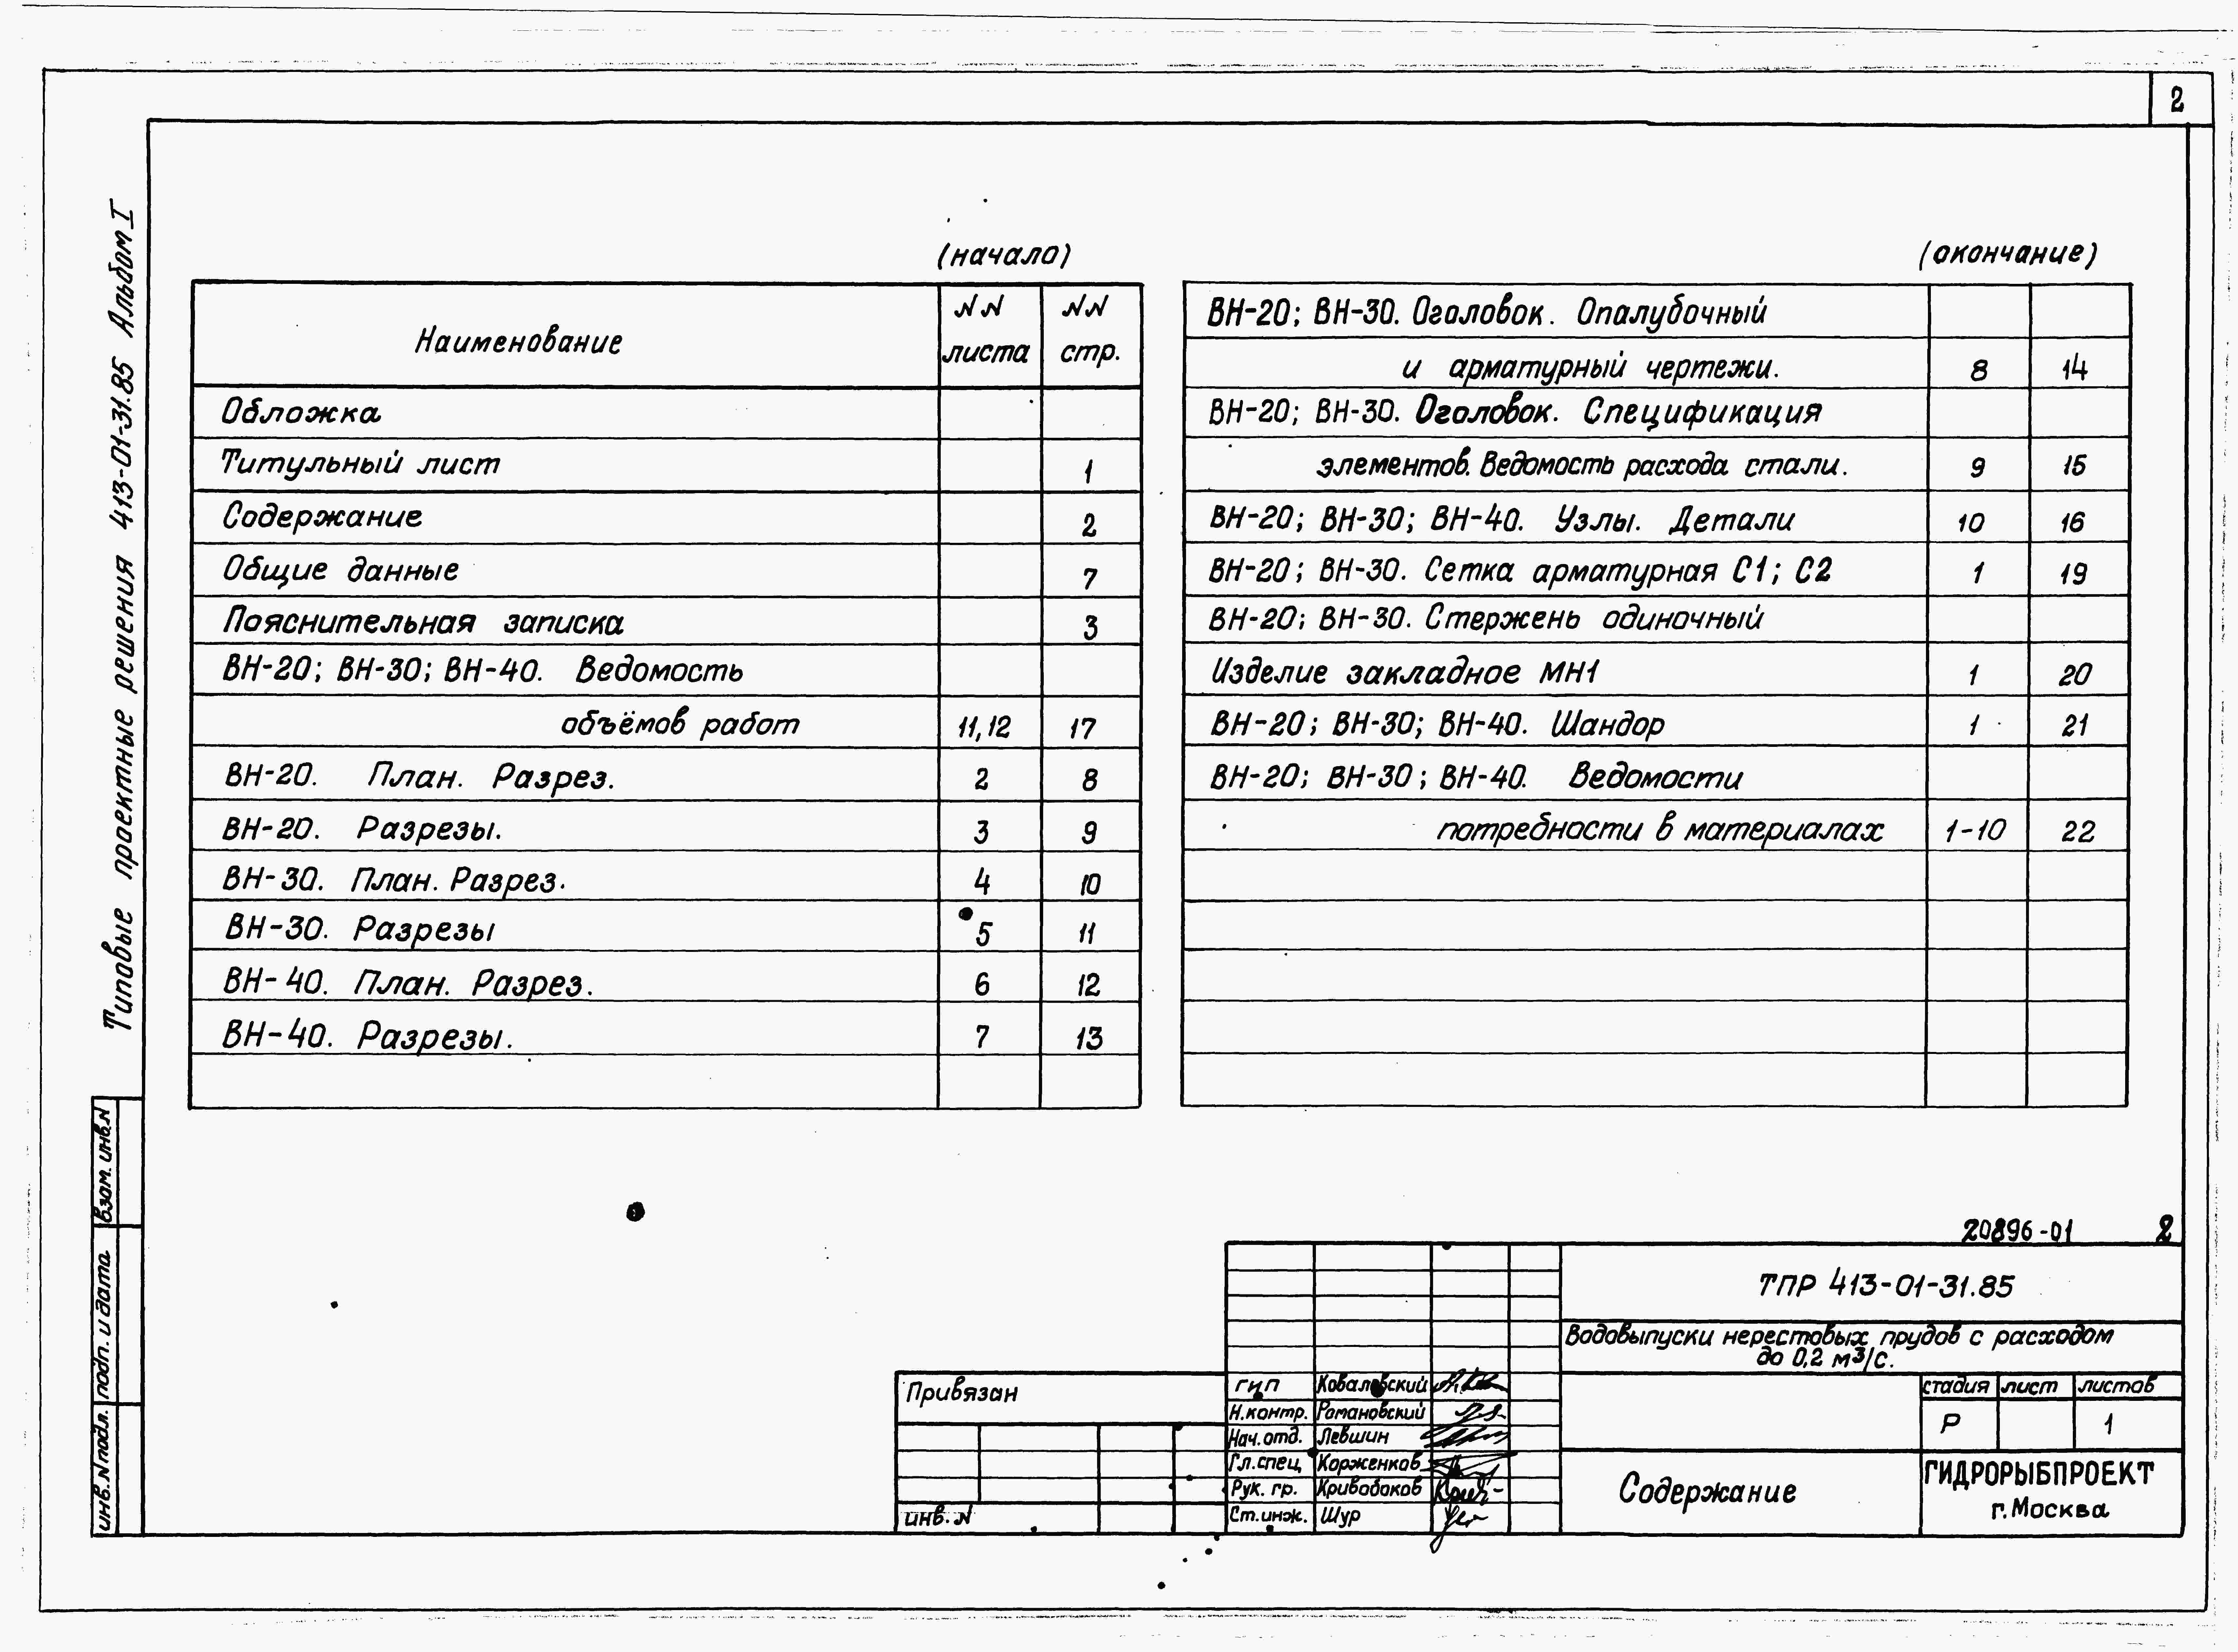 2
Типовые проектные решения 413-01-31.85 Альбом I
(начало)
Наименование NN листа NN стр.
Обложка
Титульный лист 1
Содержание 2
Общие данные 7
Пояснительная записка 3
ВН-20; ВН-30; ВН-40. Ведомость
объёмов работ 11,12 17
ВН-20. План. Разрез. 2 8
ВН-20. Разрезы. 3 9
ВН-30. План. Разрез. 4 10
ВН-30. Разрезы 5 11
ВН-40. План. Разрез. 6 12
ВН-40. Разрезы. 7 13
(окончание)
ВН-20; ВН-30. Оголовок. Опалубочный
и арматурный чертежи. 8 14
ВН-20; ВН-30. Оголовок. Спецификация
элементов. Ведомость расхода стали. 9 15
ВН-20; ВН-30; ВН-40. Узлы. Детали 10 16
ВН-20; ВН-30. Сетка арматурная С1; С2 1 19
ВН-20; ВН-30. Стержень одиночный
Изделие закладное МН1 1 20
ВН-20; ВН-30; ВН-40. Шандор 1 21
ВН-20; ВН-30; ВН-40. Ведомости
потребности в материалах 1-10 22
взам. инв.N
подп. и дата
инв.N подл.
20896-01 2
ТПР 413-01-31.85
Водовыпуски нерестовых прудов с расходом
до 0,2 м³/с.
Привязан
инв. N
гип Ковалевский
Н.контр. Романовский
Нач.отд. Левшин
Гл.спец. Корженков
Рук. гр. Кривобоков
Ст.инж. Шур
стадия лист листов
Р 1
Содержание
ГИДРОРЫБПРОЕКТ
г.Москва